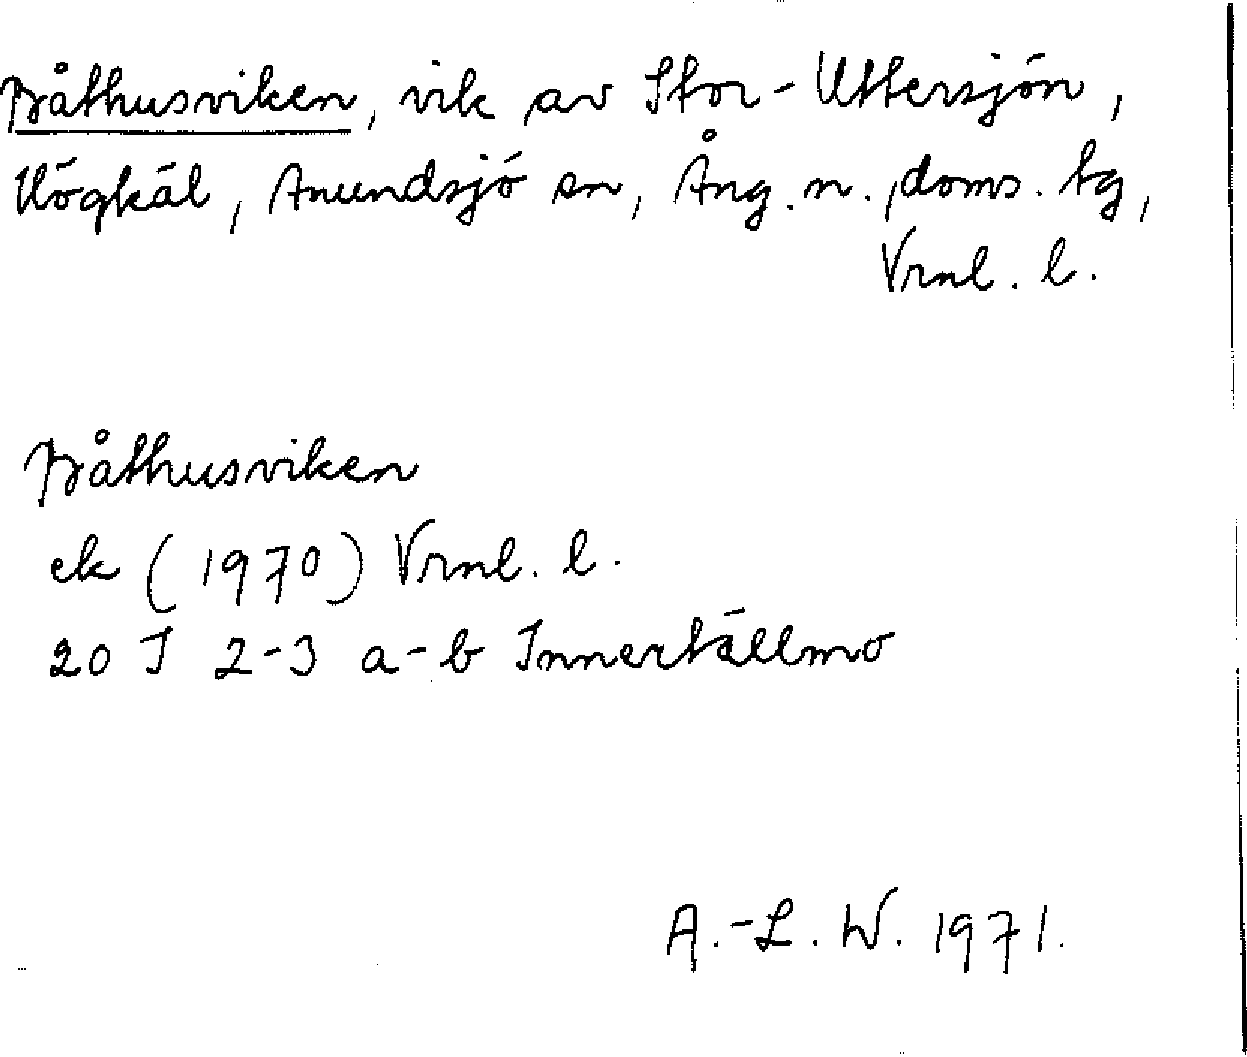 Båthusviken, vik av Stor-Uttersjön,
Högkäl, Anundsjö sn, Ång. n. doms. tg,
Vrnl. l.
Båthusviken
ek (1970) Vrnl. l.
20 J 2-3 a-b Innertällmo
A.-L. W. 1971.